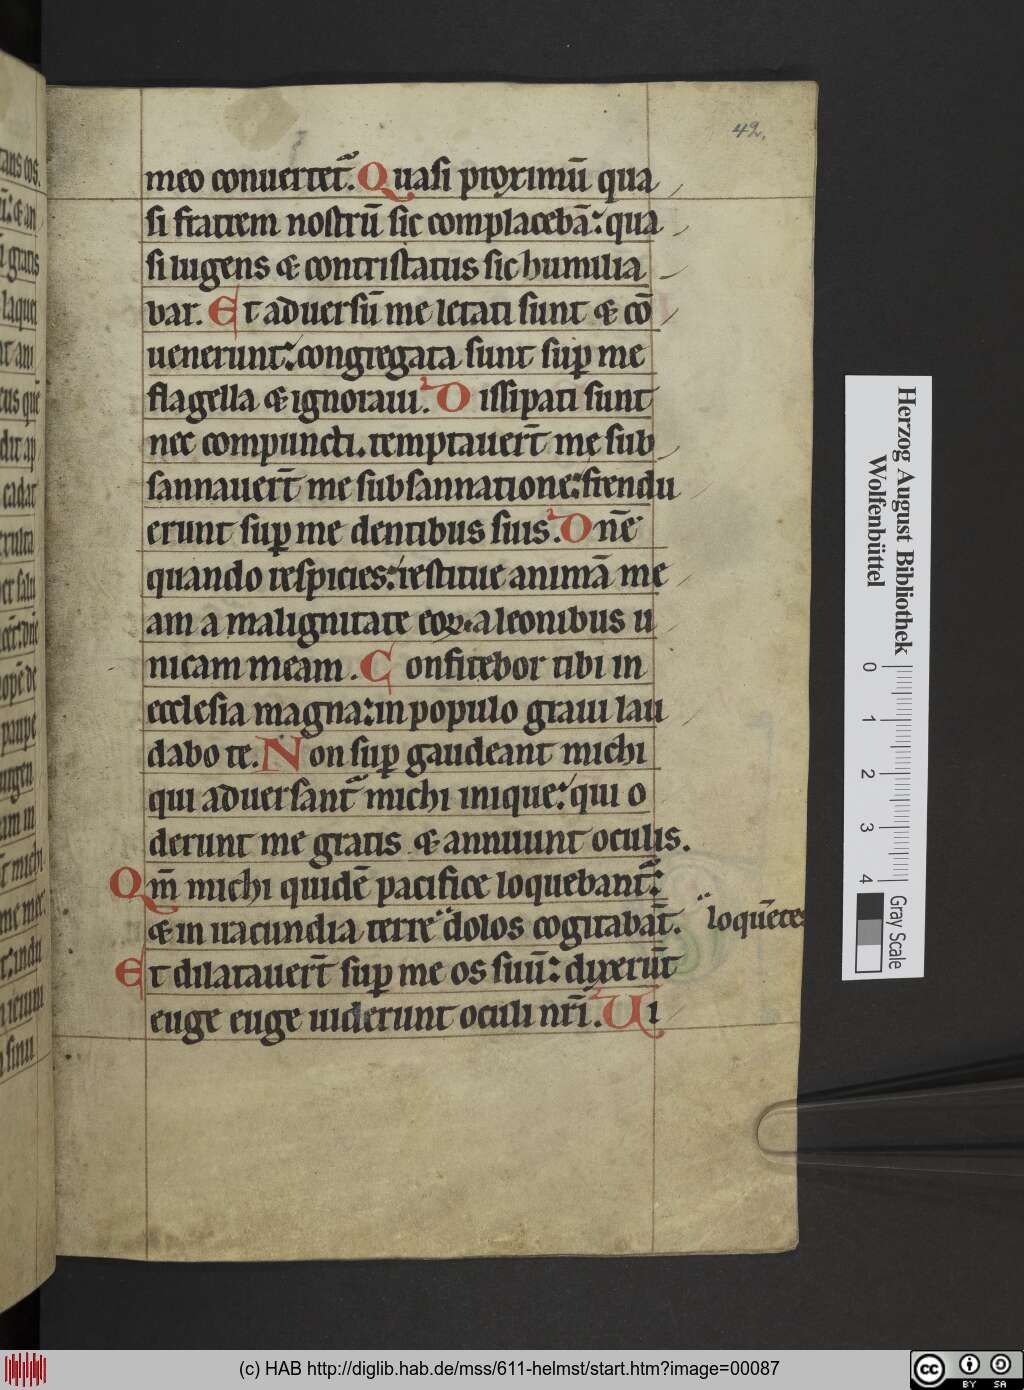 42.
meo conuertet᷑. Quasi proximū qua
si fratrem nostrū sic complacebā: qua
si lugens & contristatus sic humilia
bar. Et aduersū me letati sunt & cō
uenerunt: congregata sunt suꝑ me
flagella & ignoraui. Dissipati sunt
nec compuncti. temptauerт̄ me sub
sannauert̄ me subsannatione: frendu
erunt suꝑ me dentibus suis. Dn̄e
quando respicies: restitue animā me
am a malignitate eoꝝ. a leonibus u
nicam meam. Confitebor tibi in
ecclesia magna: in populo graui lau
dabo te. Non suꝑ gaudeant michi
qui aduersant᷑ michi inique: qui o
derunt me gratis & annuunt oculis.
Qm̄ michi quidē pacifice loquebant᷑:
& in iracundia terre dolos cogitabāt.
loquētes
Et dilatauert̄ suꝑ me os suū: dixerūt
euge euge uiderunt oculi nr̄i. Ui
Herzog August Bibliothek
Wolfenbüttel
0 1 2 3 4
Gray Scale
(c) HAB http://diglib.hab.de/mss/611-helmst/start.htm?image=00087
cc BY SA